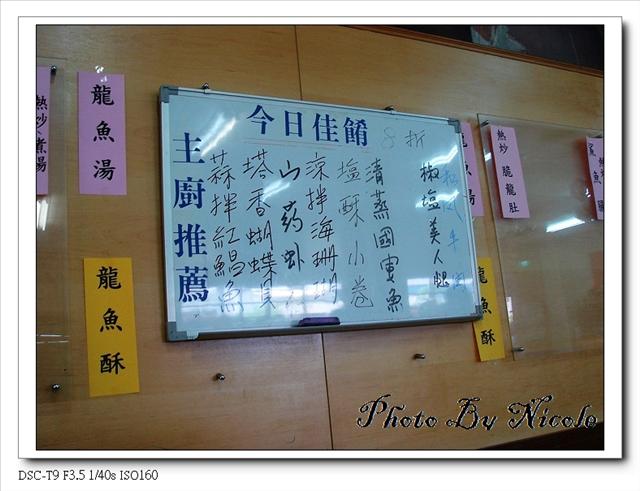 今日佳餚
8折
主廚推薦
椒鹽美人腿
清蒸國宴魚
塩酥小卷
涼拌海珊瑚
山药
塔香蝴蝶貝
蒜拌紅鯧魚
龍魚湯
龍魚酥
熱炒、煮湯
熱炒 脆龍肚
龍魚酥
Photo By Nicole
DSC-T9 F3.5 1/40s ISO160